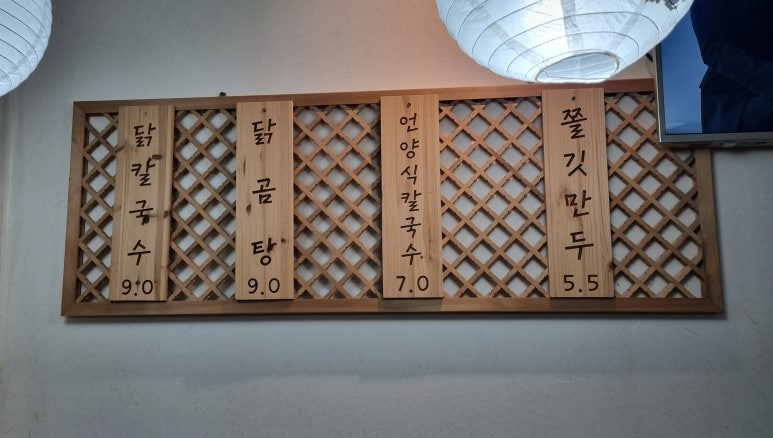 닭칼국수
9.0
닭곰탕
9.0
언양식칼국수
7.0
쫄깃만두
5.5